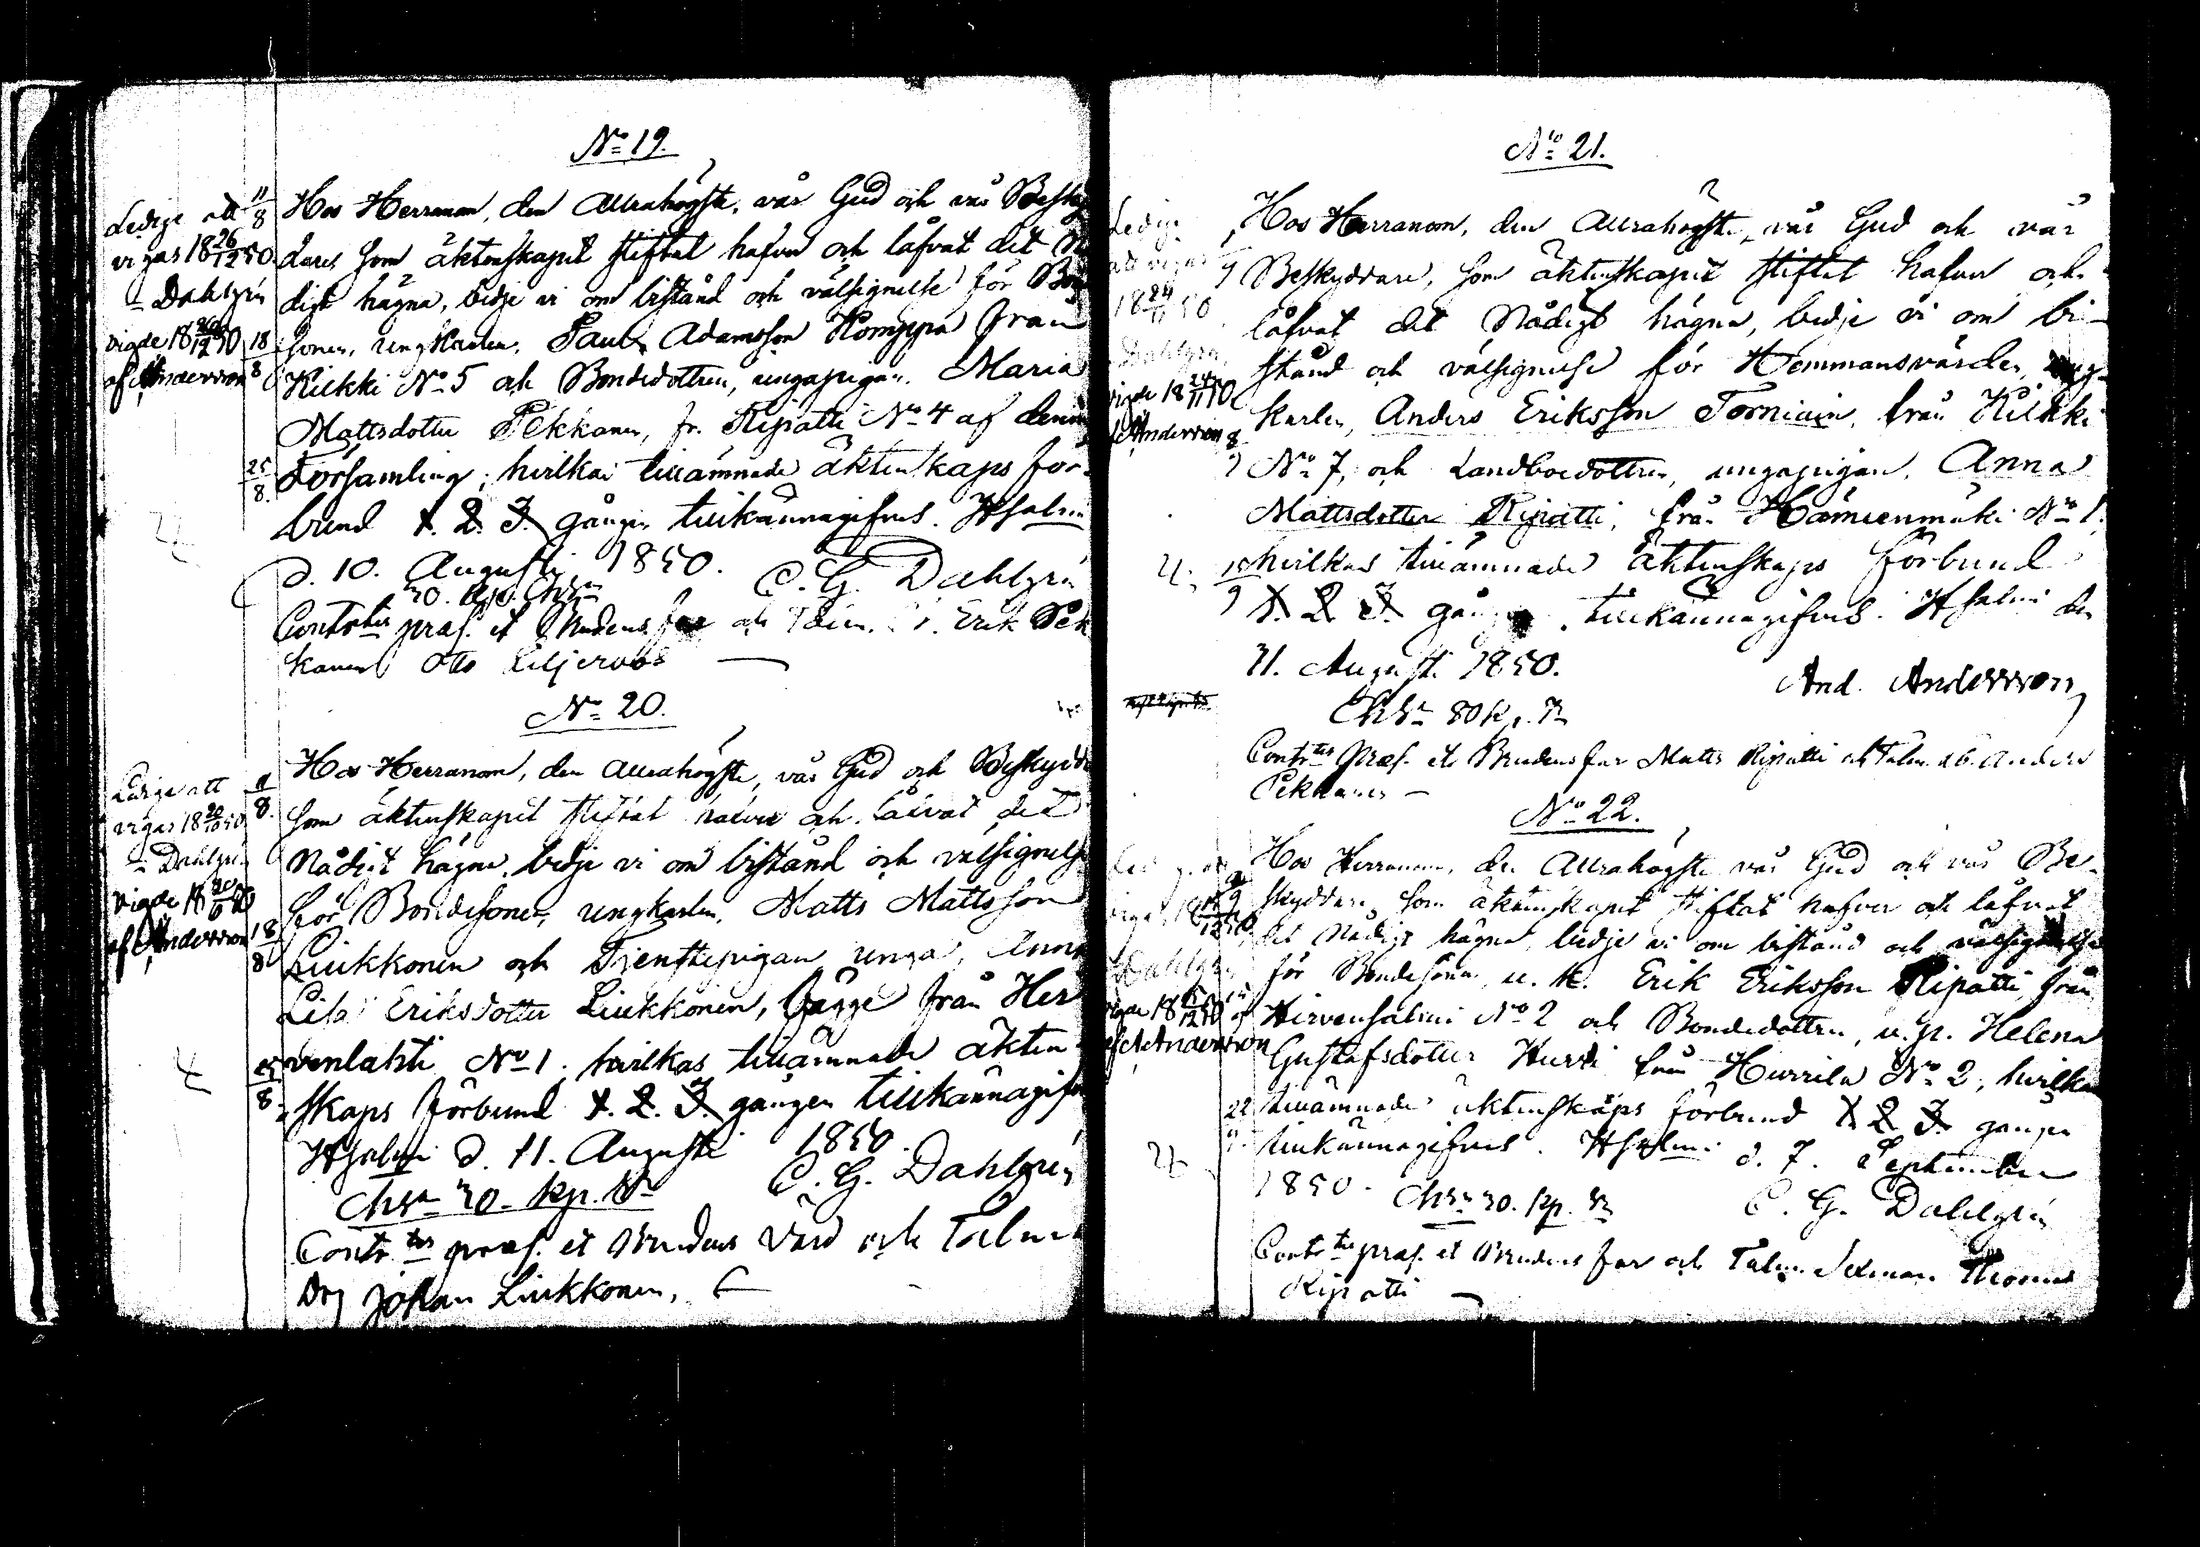 No 19.
Hos Herranom, den Allrahögste, vår Gud och vår Besky
dare som äktenskapet stiftat hafver och låfvat det
digt hägna, bedje vi om bistånd och välsignelse för Bon
sonen, ungkarlen, Paul Adamsson Komppa från
Kiekki No 5 och Bondedottren, ungapigan, Maria
Mattsdotter Pekkanen, fr. Ripatti No 4 af denna
Församling; hvilkas tillämnade äktenskaps för-
bund 1. 2. 3. gången tillkännagifves. Hsalmi
d. 10. Augusti 1850. C. G. Dahlgrén
Contr:ter præs. et Brudens far och Talm. Erik Pek
kanen Otto Liljeroos
Ledige att
vigas 18 26/12 50
Dahlgrén
vigde 18 26/12 50
af Andersson
11/8
18/8
25/8
No 20.
Hos Herranom, den Allrahögste, vår Gud och Beskydda
som äktenskapet stiftat hafver och låfvat det
Nådigt hägna, bedje vi om bistånd och välsignelse
för Bondesonen, ungkarlen, Matts Mattsson
Liukkonen och Tjenstepigan unga, Anna
Lisa Eriksdotter Liukkonen, bägge från Hir
venlahti No 1. hvilkas tillämnade äkten-
skaps förbund 1. 2. 3. gången tillkännagifv
Hsalmi d. 11. Augusti 1850.
30. kp. Sr C. G. Dahlgrén
Contr:ter præs. et Brudens Vård och Talm
Johan Liukkonen,
Ledige att
vigas 18 20/10 50
Dahlgrén
vigde 18 20/10 50
af Andersson
18/8
25/8
No 21.
Hos Herranom, den Allrahögste, vår Gud och vår
Beskyddare, som äktenskapet stiftat hafver och
låfvat det Nådigt hägna, bedje vi om bi-
stånd och välsignelse för Hemmansvärden, ung-
karlen, Anders Eriksson Torniain, från Kiekki
No 7, och Landboedottren, ungapigan, Anna
Mattsdotter Ripatti, från Hämeenmäki No 1,
hvilkas tillämnade äktenskaps förbund
1. 2. 3. gången tillkännagifves. Hsalmi den
31. Augusti 1850.
And. Andersson
80 kp. Sr
Contr:ter præs. et Brudens far Matts Ripatti och Talm. Anders
Pekkanen
Ledige
att vigas
18 24/11 50
Dahlgrén
vigde 18 24/11 50
Andersson
No 22.
Hos Herranom, den Allrahögste vår Gud och vår Be-
skyddare, som äktenskapet stiftat hafver och låfvat
det Nådigt hägna, bedje vi om bistånd och välsignelse
för Bondesonen, u. k. Erik Eriksson Ripatti, från
Hirvensalmi No 2 och Bondedottren, u. p. Helena
Gustafsdotter Hurri från Hurrila No 2, hvilkas
tillämnade äktenskaps förbund 1 2 3. gången
tillkännagifves. Hsalmi d. 7. September
1850. 30. kp. Sr C. G. Dahlgrén
Contr:ter præs. et Brudens far och Talm. Sexman Thomas
Ripatti
Dahlgrén
af A. Andersson
22/9